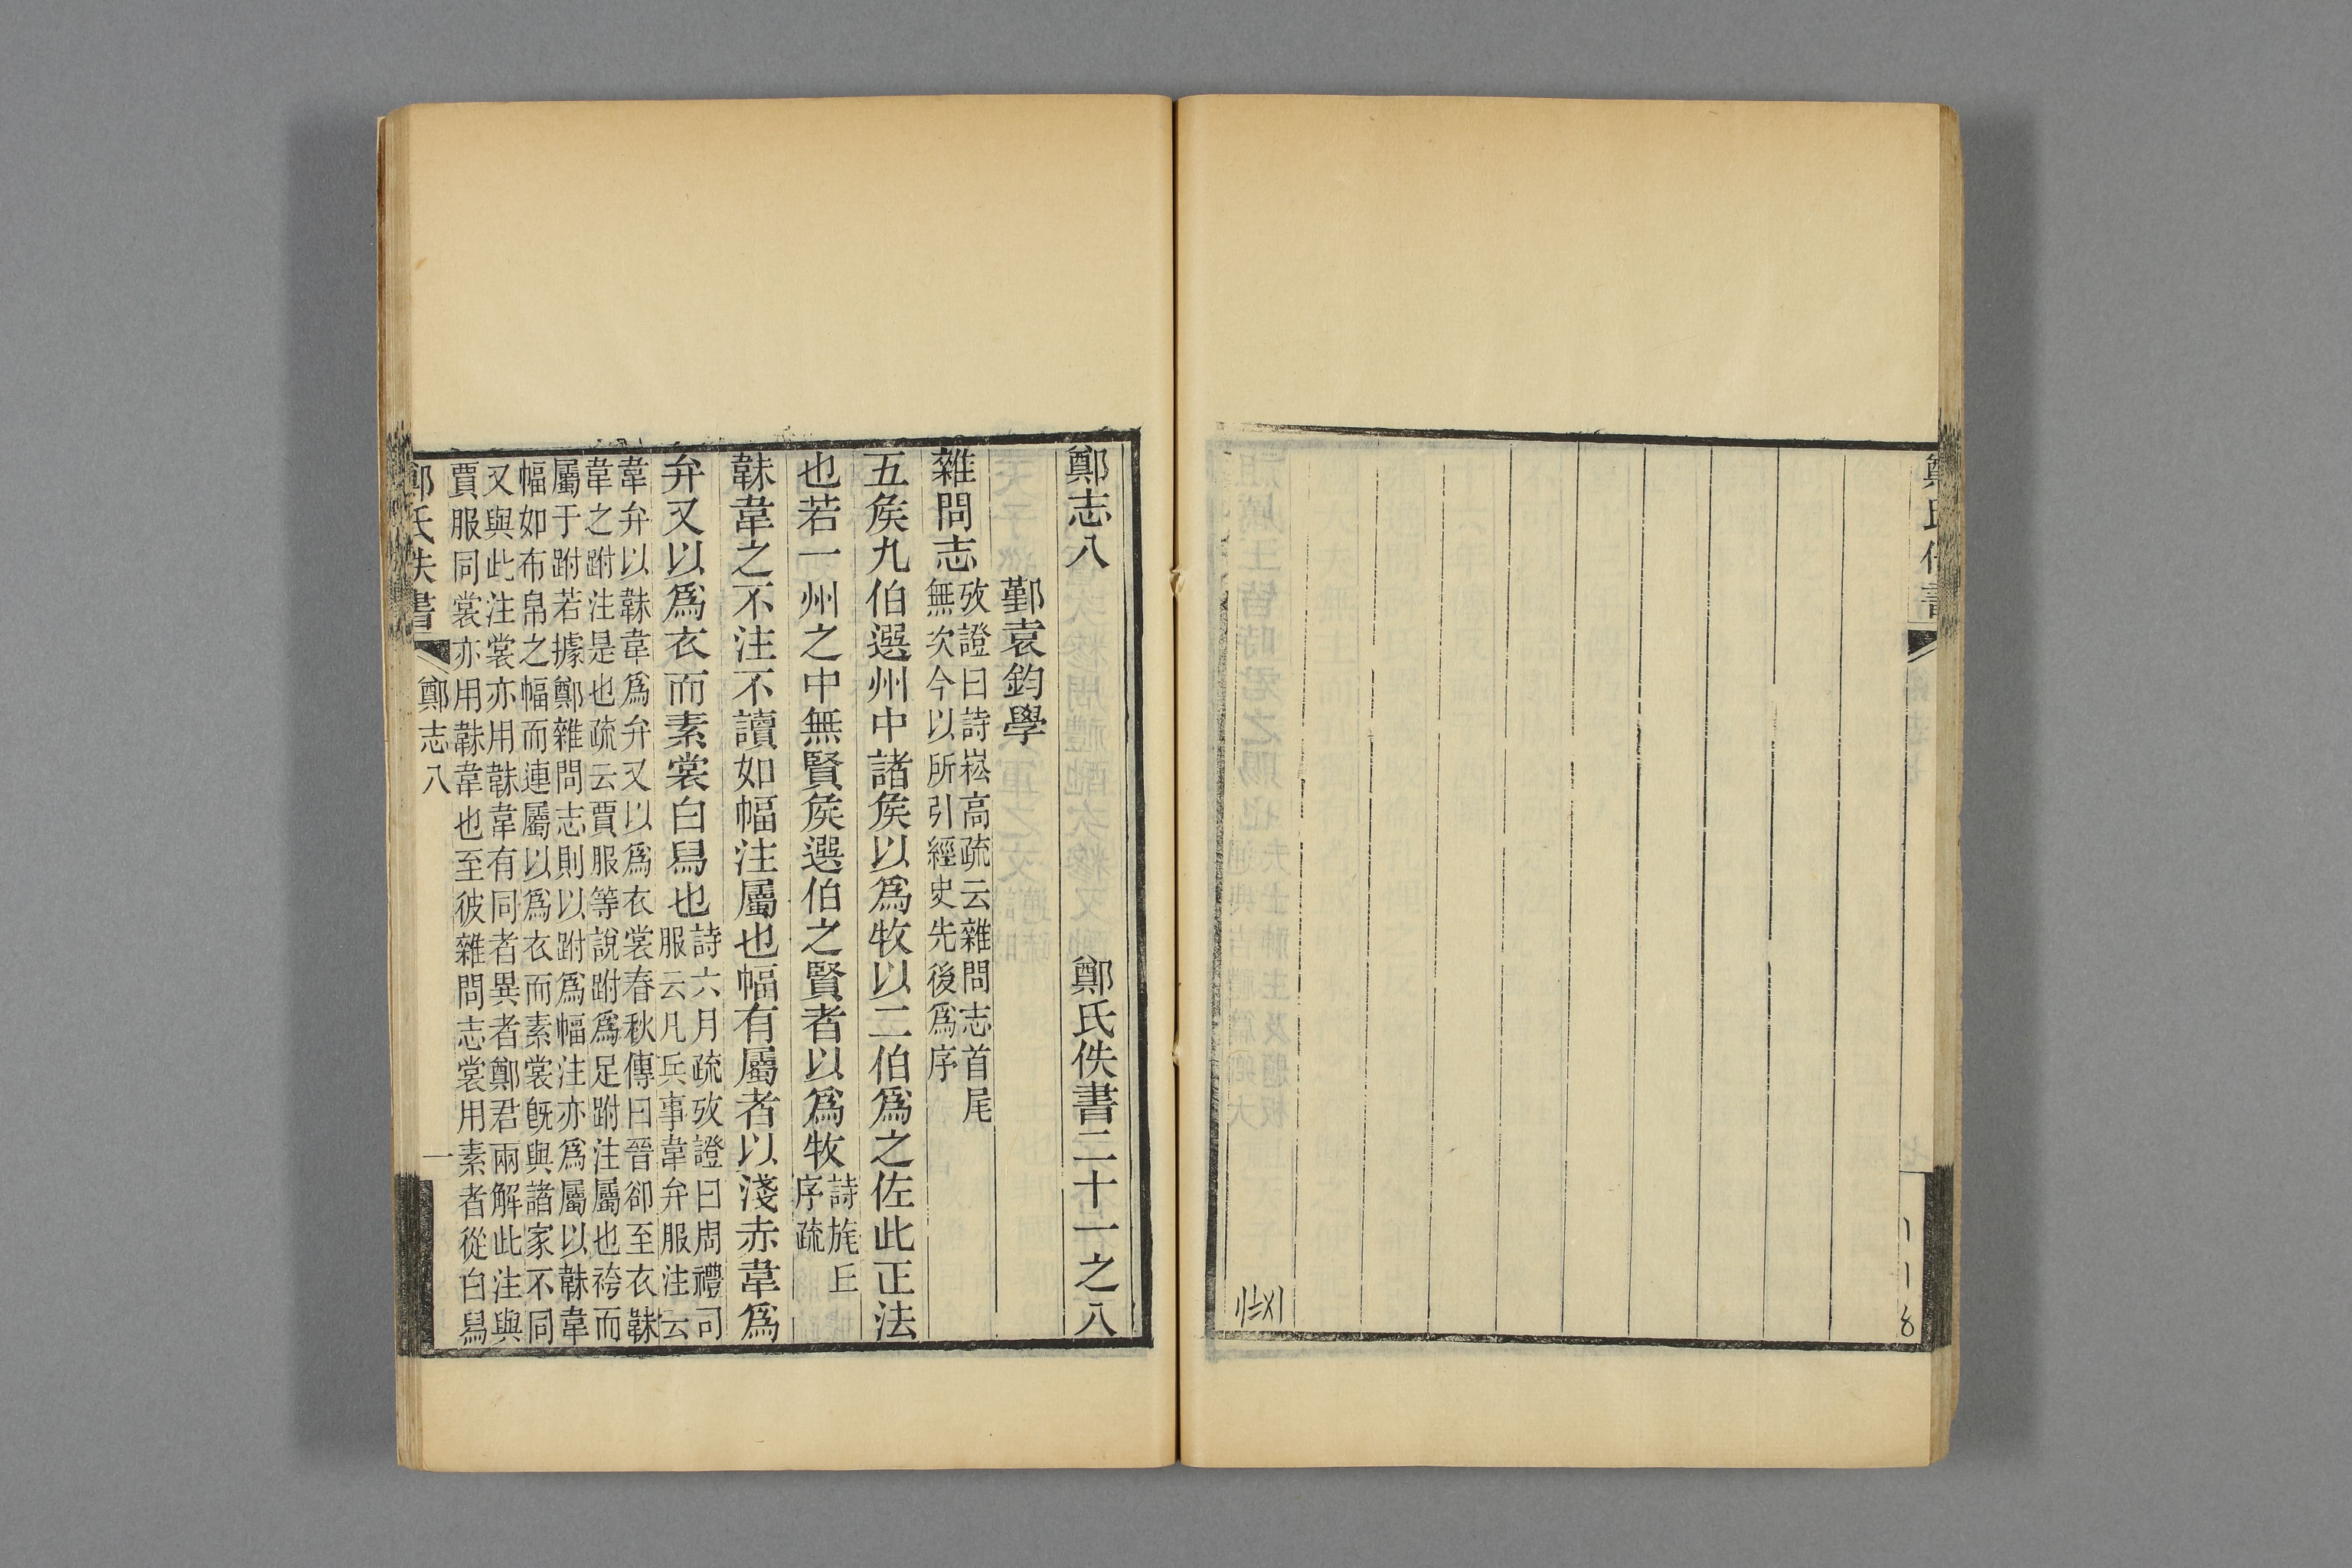 鄭氏佚書
鄭志八　鄭氏佚書二十一之八
鄞袁鈞學
雜問志
攷證曰詩崧高疏云雜問志首尾
無次今以所引經史先後爲序
五矦九伯選州中諸矦以爲牧以二伯爲之佐此正法
也若一州之中無賢矦選伯之賢者以爲牧
詩旄𠀉
序疏
韎韋之不注不讀如幅注屬也幅有屬者以淺赤韋爲
弁又以爲衣而素裳白舄也
詩六月疏攷證曰周禮司
服云凡兵事韋弁服注云
韋弁以韎韋爲弁又以爲衣裳春秋傳曰晉卻至衣韎
韋之跗注是也疏云賈服等說跗爲足跗注屬也袴而
屬于跗若據鄭雜問志則以跗爲幅注亦爲屬以韎韋
幅如布帛之幅而連屬以爲衣而素裳旣與諸家不同
又與此注裳亦用韎韋有同者異者鄭君兩解此注與
賈服同裳亦用韎韋也至彼雜問志裳用素者從白舄
鄭氏佚書　鄭志八　一